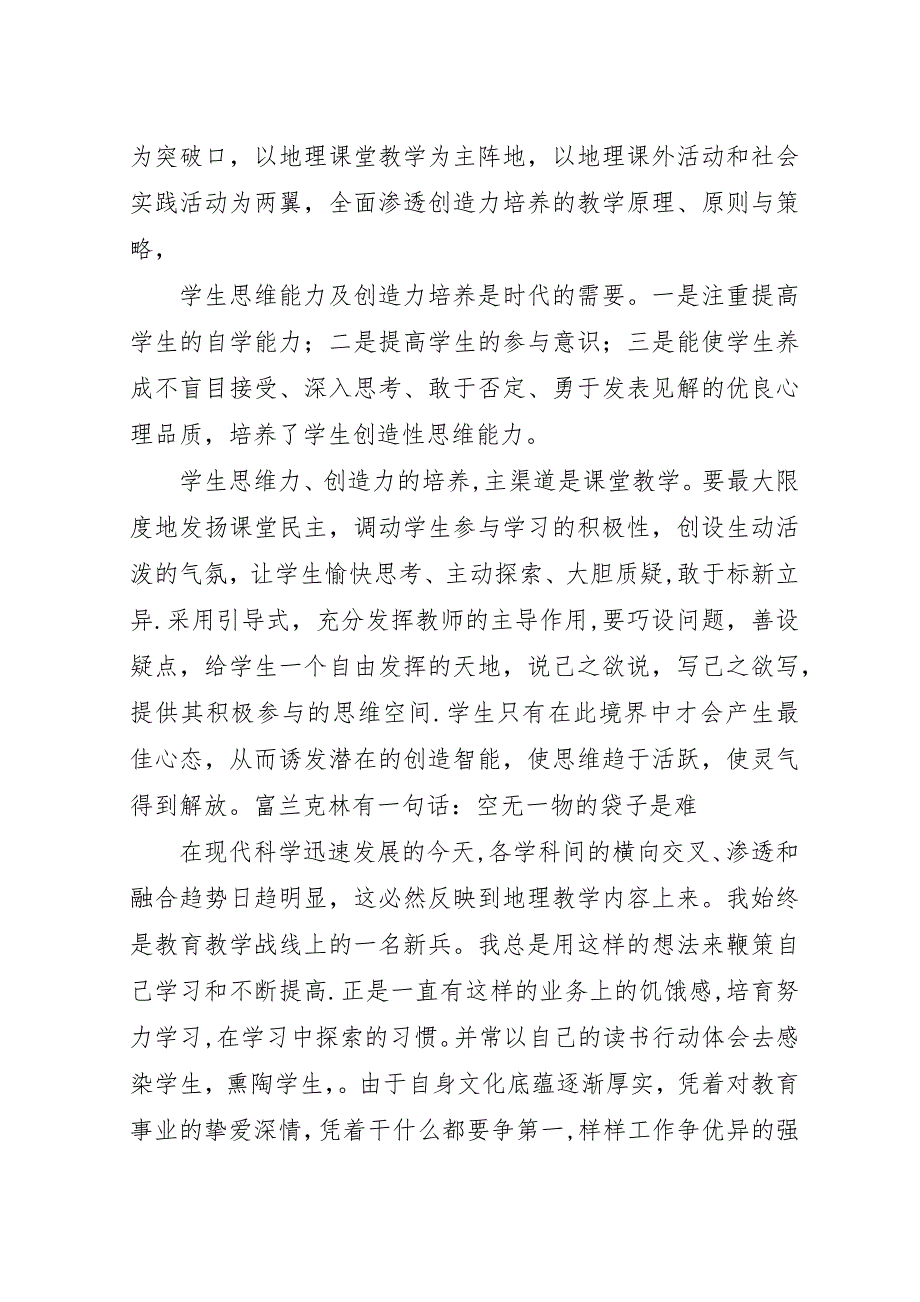 为突破口，以地理课堂教学为主阵地，以地理课外活动和社会
实践活动为两翼，全面渗透创造力培养的教学原理、原则与策
略，
学生思维能力及创造力培养是时代的需要。一是注重提高
学生的自学能力；二是提高学生的参与意识；三是能使学生养
成不盲目接受、深入思考、敢于否定、勇于发表见解的优良心
理品质，培养了学生创造性思维能力。
学生思维力、创造力的培养,主渠道是课堂教学。要最大限
度地发扬课堂民主，调动学生参与学习的积极性，创设生动活
泼的气氛，让学生愉快思考、主动探索、大胆质疑,敢于标新立
异.采用引导式，充分发挥教师的主导作用,要巧设问题，善设
疑点，给学生一个自由发挥的天地，说己之欲说，写己之欲写，
提供其积极参与的思维空间.学生只有在此境界中才会产生最
佳心态，从而诱发潜在的创造智能，使思维趋于活跃，使灵气
得到解放。富兰克林有一句话：空无一物的袋子是难
在现代科学迅速发展的今天,各学科间的横向交叉、渗透和
融合趋势日趋明显，这必然反映到地理教学内容上来。我始终
是教育教学战线上的一名新兵。我总是用这样的想法来鞭策自
己学习和不断提高.正是一直有这样的业务上的饥饿感,培育努
力学习,在学习中探索的习惯。并常以自己的读书行动体会去感
染学生，熏陶学生,。由于自身文化底蕴逐渐厚实，凭着对教育
事业的挚爱深情,凭着干什么都要争第一,样样工作争优异的强